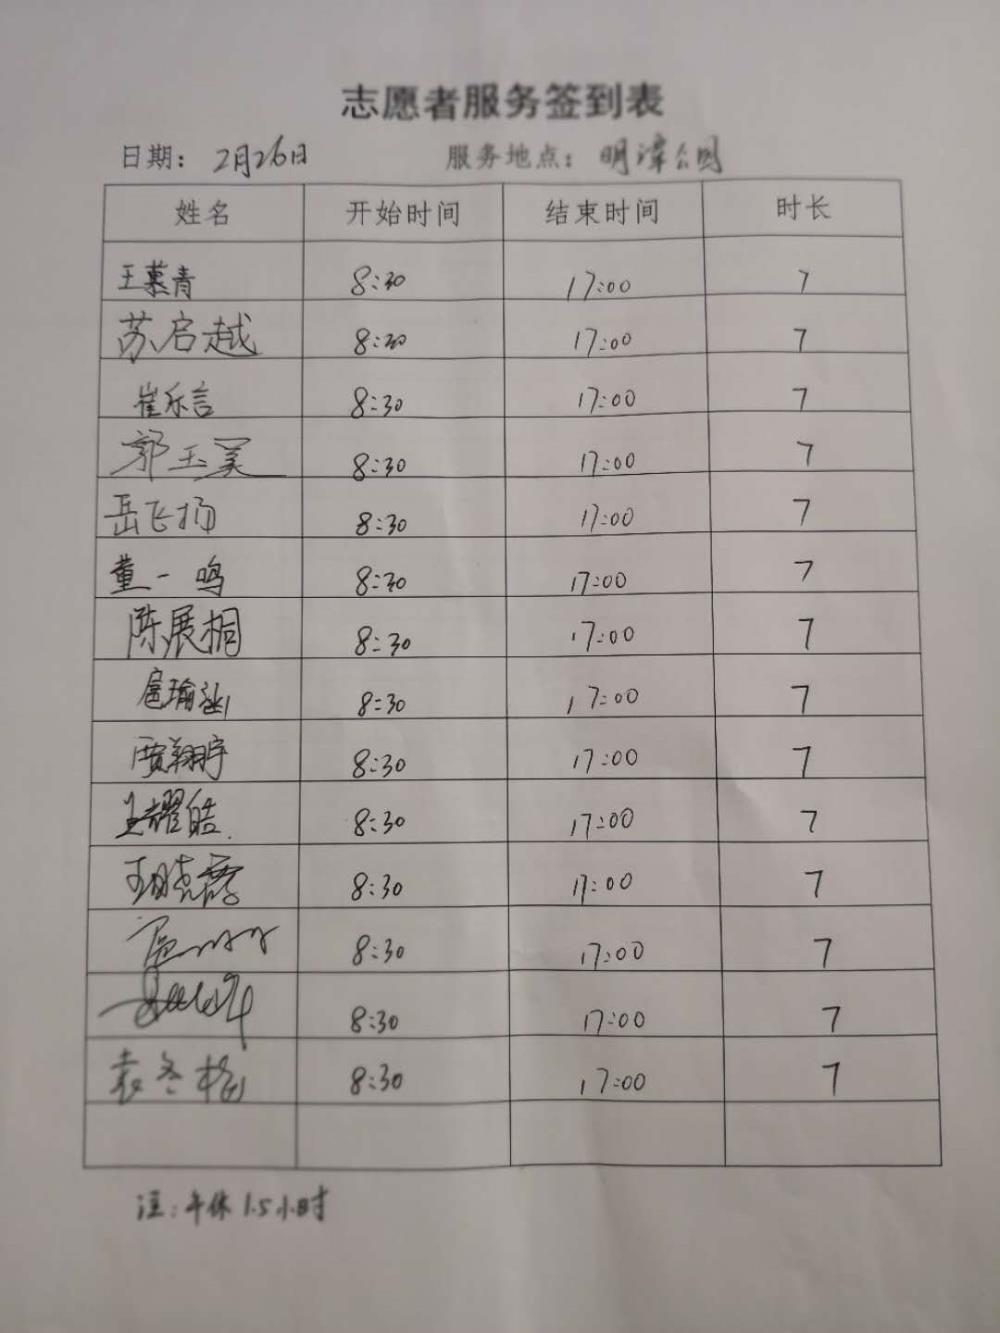 志愿者服务签到表
日期: 2月26日 服务地点: 明漳公园
姓名 开始时间 结束时间 时长
王慕青 8:30 17:00 7
苏启越 8:30 17:00 7
崔乐言 8:30 17:00 7
郭玉昊 8:30 17:00 7
岳飞扬 8:30 17:00 7
董一鸣 8:30 17:00 7
陈展桐 8:30 17:00 7
扈瑜涵 8:30 17:00 7
贾翔宇 8:30 17:00 7
王耀皓 8:30 17:00 7
王晓露 8:30 17:00 7
8:30 17:00 7
8:30 17:00 7
袁冬梅 8:30 17:00 7
注:午休1.5小时